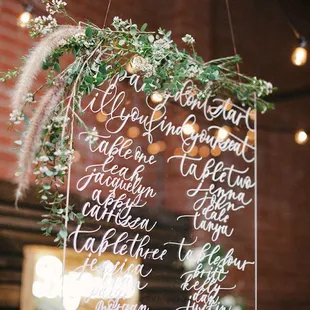 party don't start
till you find your seat
table one
leah
jacquelyn
abby
carissa
table two
jenna
john
cali
tanya
table three
jessica
table four
britt
kelly